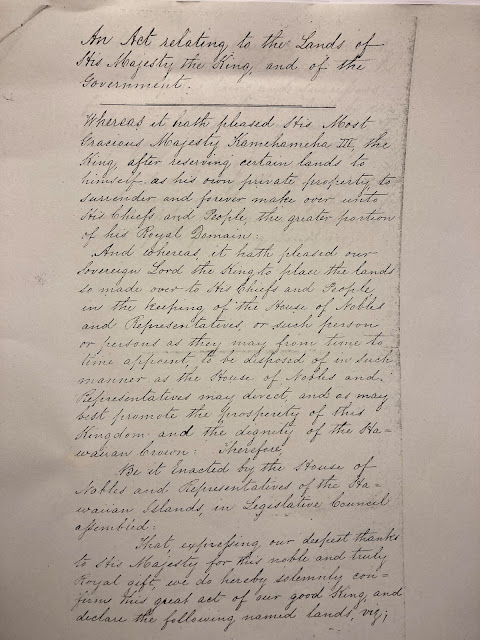 An Act relating to the Lands of
His Majesty the King, and of the
Government.
Whereas it hath pleased His Most
Gracious Majesty Kamehameha III, the
King, after reserving certain lands to
himself as his own private property, to
surrender and forever make over unto
His Chiefs and People, the greater portion
of his Royal Domain:
And whereas, it hath pleased our
Sovereign Lord the King, to place the lands
so made over to His Chiefs and People
in the keeping of the House of Nobles
and Representatives, or such person
or persons as they may from time to
time appoint, to be disposed of in such
manner as the House of Nobles and
Representatives may direct, and as may
best promote the prosperity of this
Kingdom and the dignity of the Ha-
waiian Crown: Therefore,
Be it Enacted by the House of
Nobles and Representatives of the Ha-
waiian Islands, in Legislative Council
assembled:
That, expressing our deepest thanks
to His Majesty for this noble and truly
Royal gift, we do hereby solemnly con-
firm this great act of our good King, and
declare the following named lands, viz;